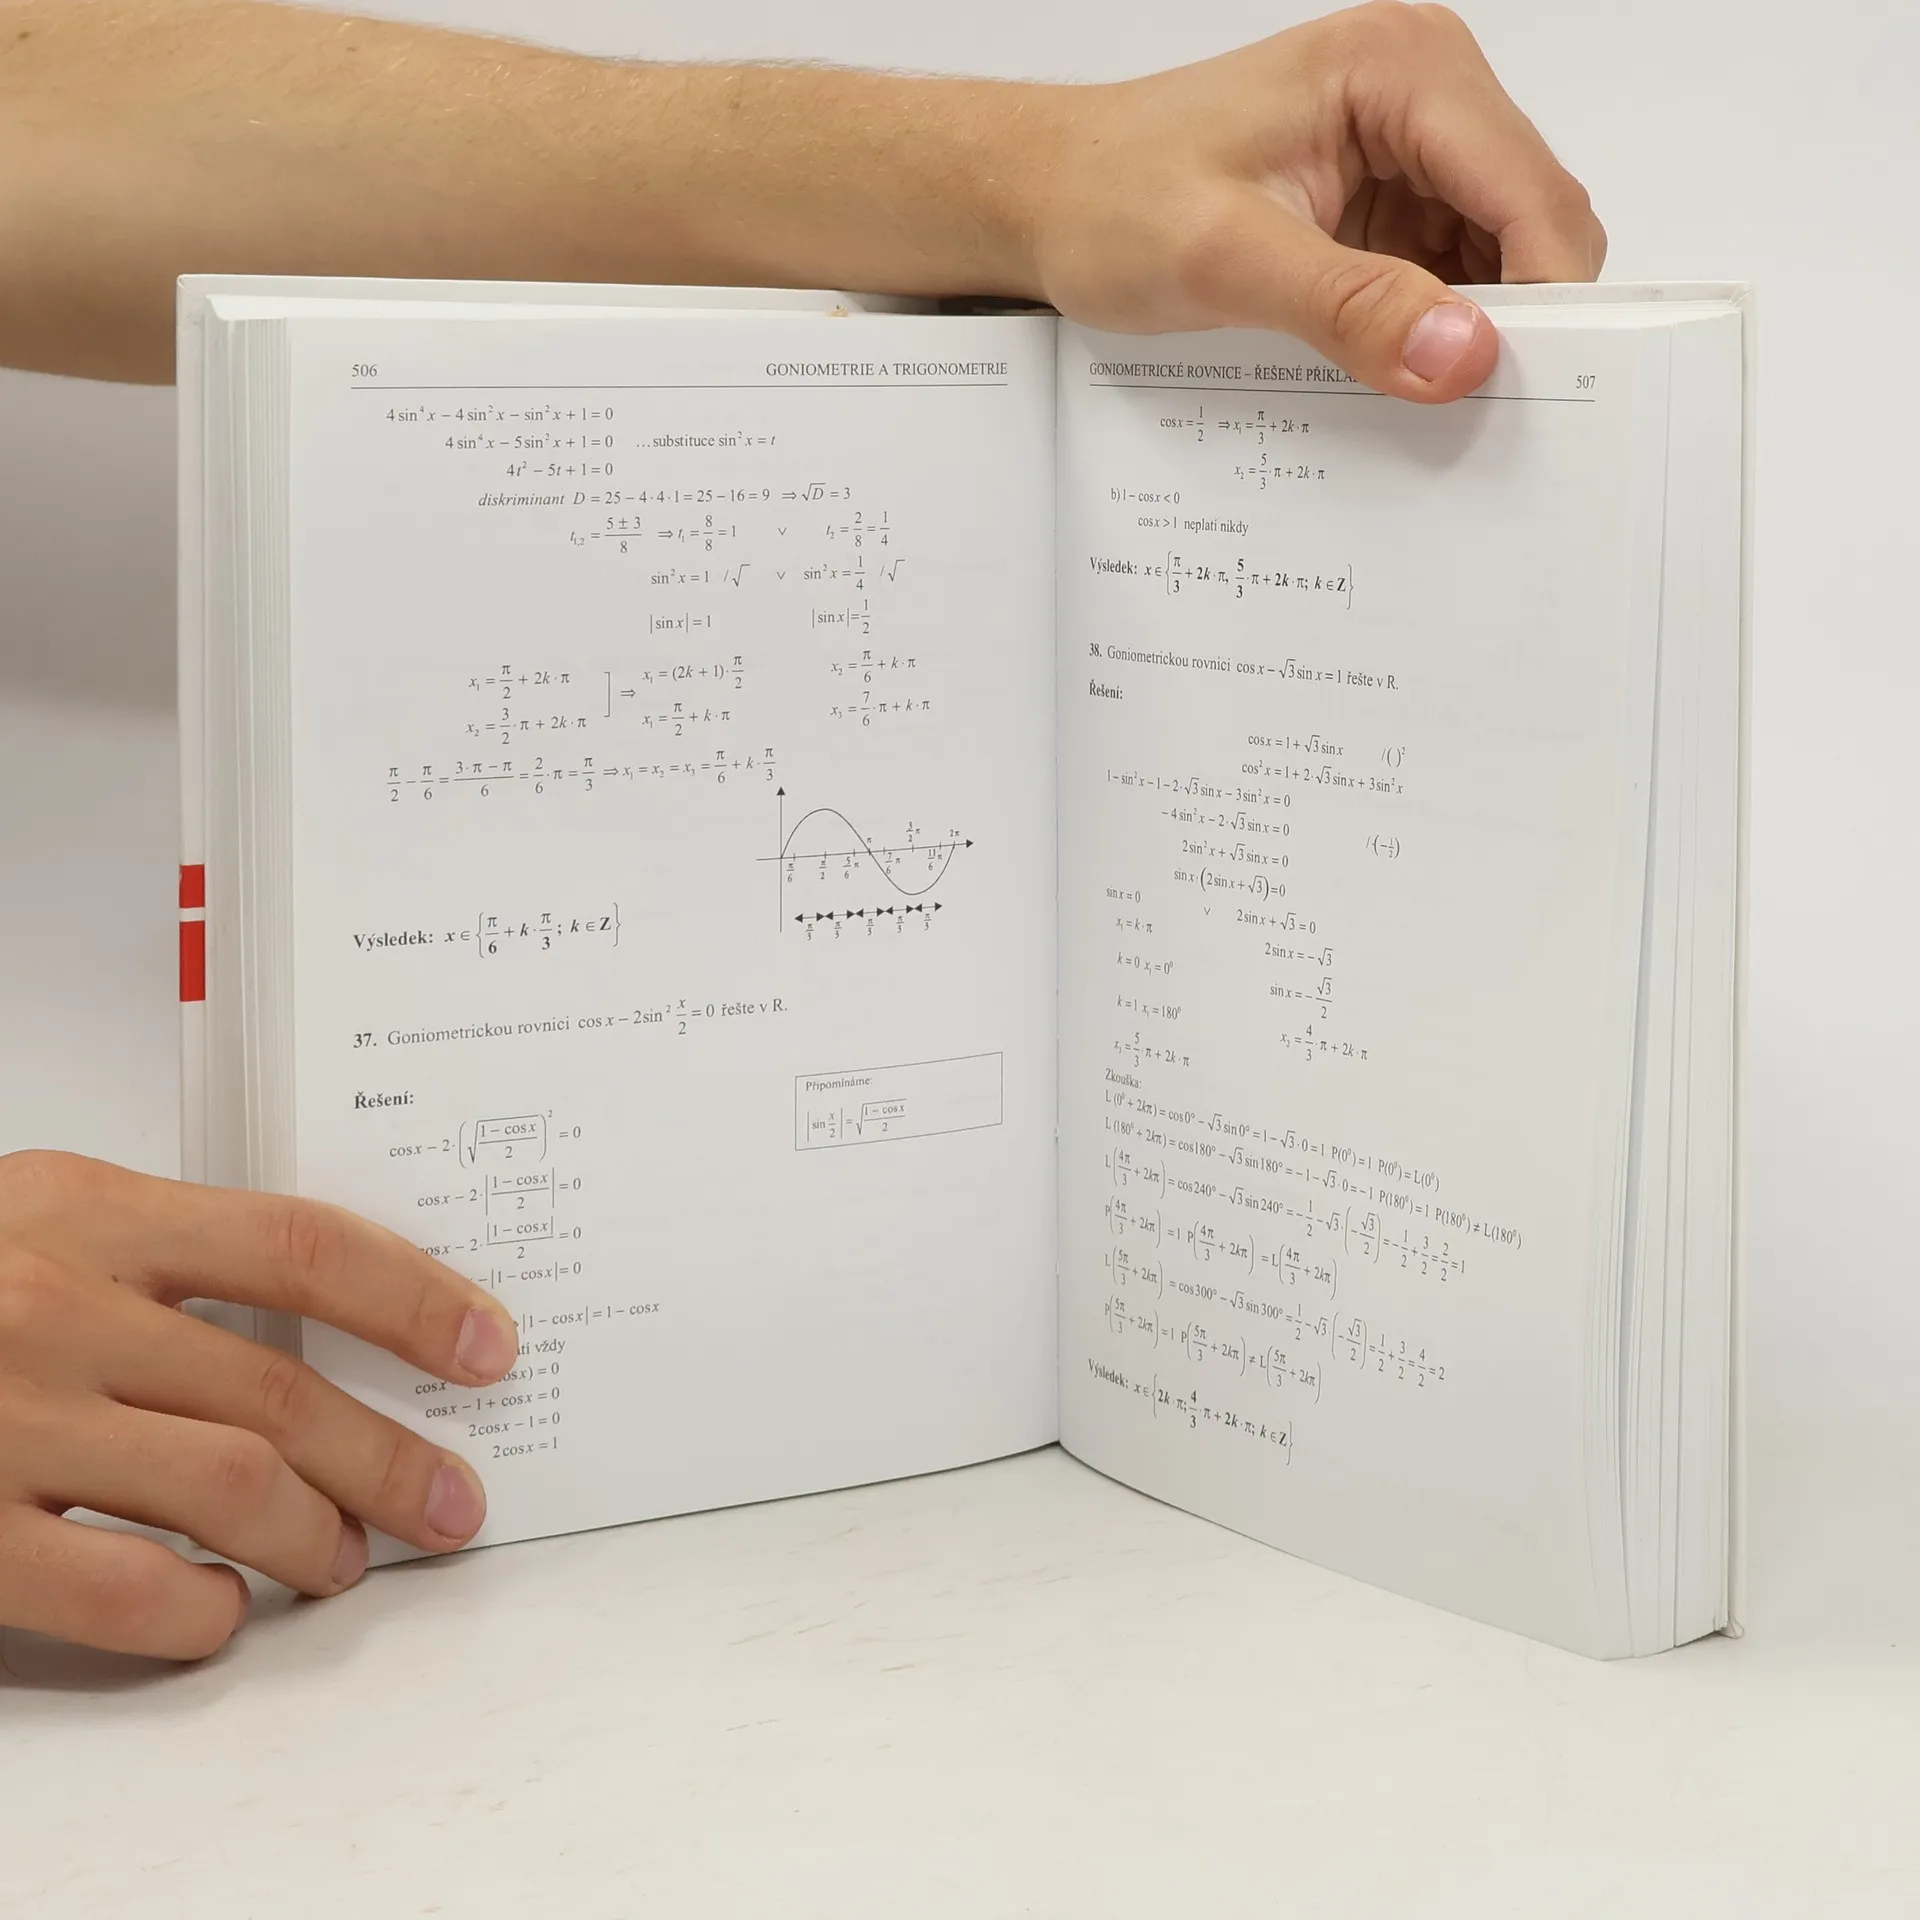 506 GONIOMETRIE A TRIGONOMETRIE
4 sin⁴ x − 4 sin² x − sin² x + 1 = 0
4 sin⁴ x − 5 sin² x + 1 = 0 ...substituce sin² x = t
4t² − 5t + 1 = 0
diskriminant D = 25 − 4·4·1 = 25 − 16 = 9 ⇒ √D = 3
t₁,₂ = (5 ± 3)/8 ⇒ t₁ = 8/8 = 1 ∨ t₂ = 2/8 = 1/4
sin² x = 1 /√ ∨ sin² x = 1/4 /√
|sin x| = 1 |sin x| = 1/2
x₁ = π/2 + 2k·π ] ⇒ x₁ = (2k + 1)·π/2 x₂ = π/6 + k·π
x₂ = 3/2·π + 2k·π x₁ = π/2 + k·π x₃ = 7/6·π + k·π
π/2 − π/6 = (3·π − π)/6 = 2/6·π = π/3 ⇒ x₁ = x₂ = x₃ = π/6 + k·π/3
π/6 π/2 5/6 π π 7/6 π 3/2 π 11/6 π 2π
π/3 π/3 π/3 π/3 π/3
Výsledek: x ∈ {π/6 + k·π/3; k ∈ Z}
37. Goniometrickou rovnici cos x − 2sin² x/2 = 0 řešte v R.
Řešení:
Připomínáme:
|sin x/2| = √((1 − cos x)/2)
cos x − 2·(√((1 − cos x)/2))² = 0
cos x − 2·|(1 − cos x)/2| = 0
cos x − 2·|1 − cos x|/2 = 0
− |1 − cos x| = 0
|1 − cos x| = 1 − cos x
vždy
cos x = 0
cos x − 1 + cos x = 0
2 cos x − 1 = 0
2 cos x = 1
GONIOMETRICKÉ ROVNICE – ŘEŠENÉ 507
cos x = 1/2 ⇒ x₁ = π/3 + 2k·π
x₂ = 5/3·π + 2k·π
b) 1 − cos x < 0
cos x > 1 neplatí nikdy
Výsledek: x ∈ {π/3 + 2k·π, 5/3·π + 2k·π; k ∈ Z}
38. Goniometrickou rovnici cos x − √3 sin x = 1 řešte v R.
Řešení:
cos x = 1 + √3 sin x /( )²
cos² x = 1 + 2·√3 sin x + 3 sin² x
1 − sin² x − 1 − 2·√3 sin x − 3 sin² x = 0
− 4 sin² x − 2·√3 sin x = 0 /·(−1/2)
2 sin² x + √3 sin x = 0
sin x·(2 sin x + √3) = 0
sin x = 0 ∨ 2 sin x + √3 = 0
x₁ = k·π 2 sin x = − √3
k = 0 x₁ = 0⁰ sin x = − √3/2
k = 1 x₁ = 180⁰ x₂ = 4/3·π + 2k·π
x₃ = 5/3·π + 2k·π
Zkouška:
L(0⁰ + 2kπ) = cos 0° − √3 sin 0° = 1 − √3·0 = 1 P(0⁰) = 1 P(0⁰) = L(0⁰)
L(180⁰ + 2kπ) = cos 180° − √3 sin 180° = −1 − √3·0 = −1 P(180⁰) = 1 P(180⁰) ≠ L(180⁰)
L(4π/3 + 2kπ) = cos 240° − √3 sin 240° = −1/2 − √3·(−√3/2) = −1/2 + 3/2 = 2/2 = 1
P(4π/3 + 2kπ) = 1 P(4π/3 + 2kπ) = L(4π/3 + 2kπ)
L(5π/3 + 2kπ) = cos 300° − √3 sin 300° = 1/2 − √3·(−√3/2) = 1/2 + 3/2 = 4/2 = 2
P(5π/3 + 2kπ) = 1 P(5π/3 + 2kπ) ≠ L(5π/3 + 2kπ)
Výsledek: x ∈ {2k·π; 4/3·π + 2k·π; k ∈ Z}